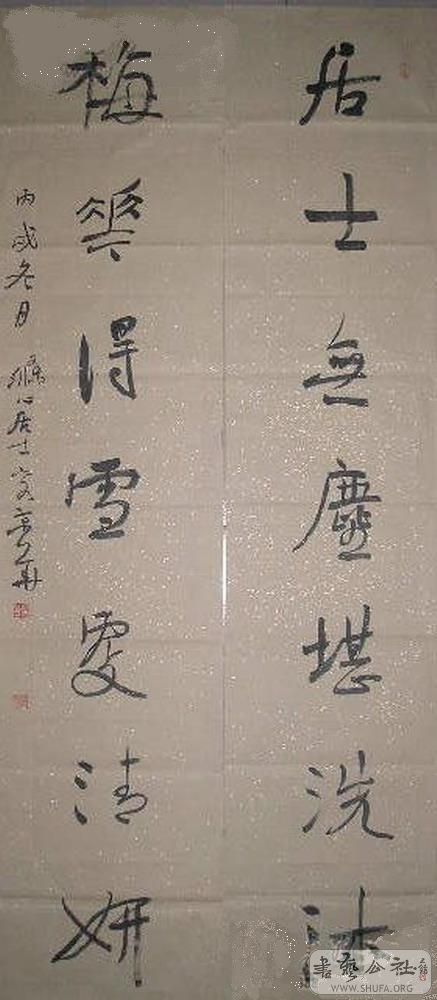 居士無塵堪洗沐
梅華得雪更清妍
丙戌冬月 心居士
書藝公社
WWW.SHUFA.ORG